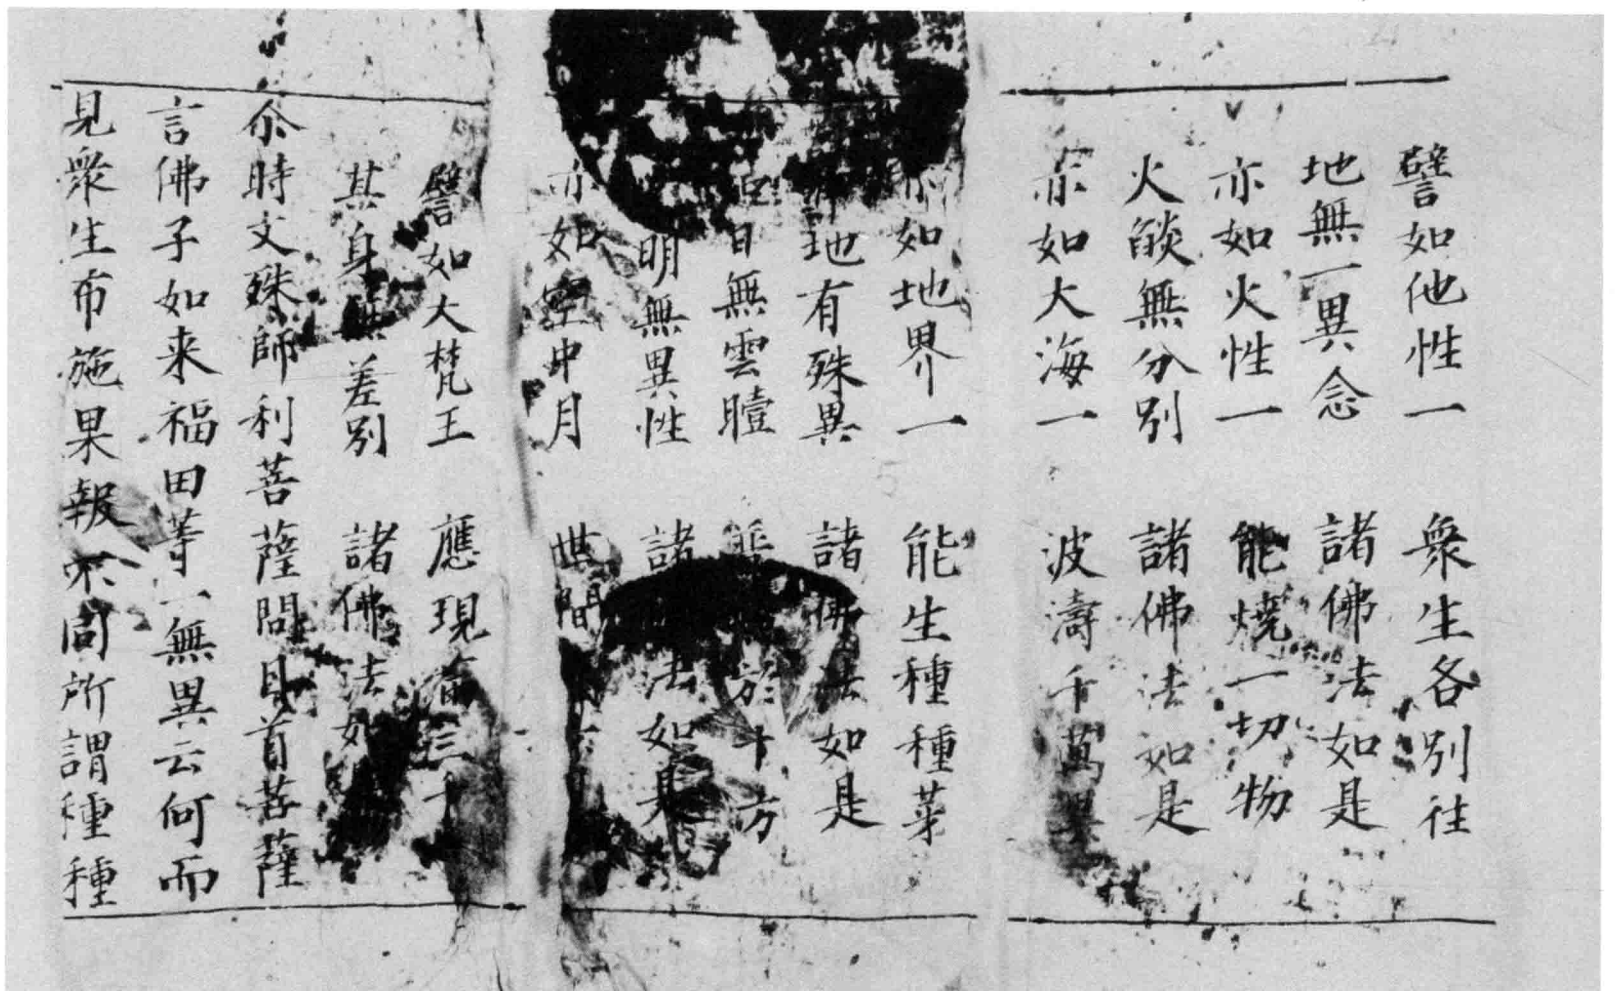 譬如他性一　衆生各別住
地無一異念　諸佛法如是
亦如火性一　能燒一切物
火燄無分別　諸佛法如是
亦如大海一　波濤千萬異
如地界一　能生種種芽
地有殊異　諸佛法如是
日無雲曀　於十方
明無異性　諸法如是
亦如空中月　世間
譬如大梵王　應現滿三千
其身無差別　諸佛法如
尒時文殊師利菩薩問目首菩薩
言佛子如来福田等一無異云何而
見衆生布施果報不同所謂種種